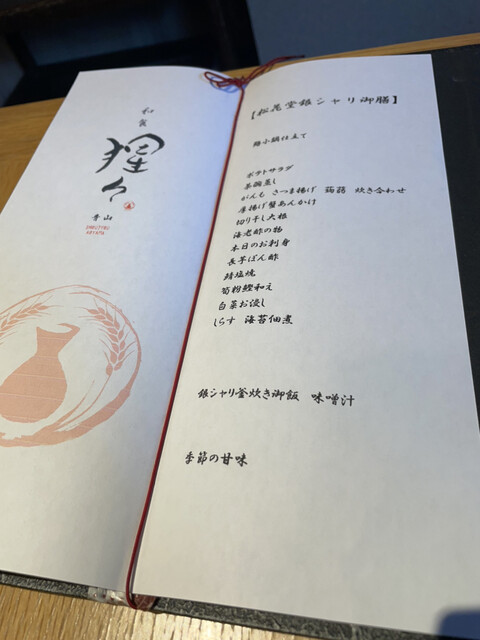 和食
猩々
青山
SHOJYOU
AOYAMA
【松花堂銀シャリ御膳】
猪小鍋仕立て
ポテトサラダ
茶碗蒸し
がんも さつま揚げ 蒟蒻 炊き合わせ
厚揚げ蟹あんかけ
切り干し大根
海老酢の物
本日のお刺身
長芋ぽん酢
鯖塩焼
筍粉鰹和え
白菜お浸し
しらす 海苔佃煮
銀シャリ釜炊き御飯 味噌汁
季節の甘味